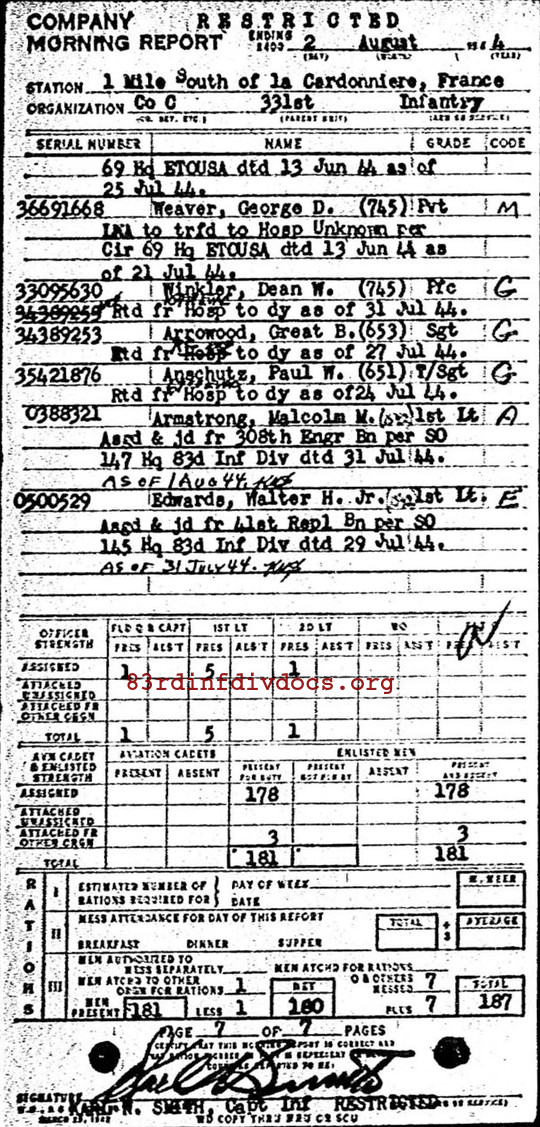 COMPANY RESTRICTED
MORNING REPORT ENDING 2400 2 August 1944
(DAY) (MONTH) (YEAR)
STATION 1 Mile South of la Cardonniere, France
ORGANIZATION Co C 331st Infantry
(CO. DET. ETC.) (PARENT UNIT) (ARM OR SERVICE)
SERIAL NUMBER NAME GRADE CODE
69 Hq ETOUSA dtd 13 Jun 44 as of
25 Jul 44.
36691668 Weaver, George D. (745) Pvt M
LKA to trfd to Hosp Unknown per
Cir 69 Hq ETOUSA dtd 13 Jun 44 as
of 21 Jul 44.
33095630 Winkler, Dean W. (745) Pfc G
34389253 Rtd fr Hosp to dy as of 31 Jul 44.
34389253 Arrowood, Great B. (653) Sgt G
Rtd fr Hosp to dy as of 27 Jul 44.
35421876 Anschutz, Paul W. (651) T/Sgt G
Rtd fr Hosp to dy as of24 Jul 44.
0388321 Armstrong, Malcolm M. 1st Lt A
Asgd & jd fr 308th Engr Bn per SO
147 Hq 83d Inf Div dtd 31 Jul 44.
AS OF 1 AUG 44.
0500529 Edwards, Walter H. Jr. 1st Lt. E
Asgd & jd fr 41st Repl Bn per SO
145 Hq 83d Inf Div dtd 29 Jul 44.
AS OF 31 JULY 44.
OFFICER STRENGTH FLD O & CAPT 1ST LT 2D LT WO
PRES ABS'T PRES ABS'T PRES ABS'T PRES ABS'T PRES ABS'T
ASSIGNED 1 5 1
83rdinfdivdocs.org
ATTACHED UNASSIGNED
ATTACHED FR OTHER ORGN
TOTAL 1 5 1
AVN CADET & ENLISTED STRENGTH AVIATION CADETS ENLISTED MEN
PRESENT ABSENT PRESENT FOR DUTY PRESENT NOT FOR DY ABSENT PRESENT AND ABSENT
ASSIGNED 178 178
ATTACHED UNASSIGNED
ATTACHED FR OTHER ORGN 3 3
TOTAL 181 181
RATIONS
I ESTIMATED NUMBER OF RATIONS REQUIRED FOR } DAY OF WEEK DATE
II MESS ATTENDANCE FOR DAY OF THIS REPORT TOTAL ÷ 3 AVERAGE
BREAKFAST DINNER SUPPER
III MEN AUTHORIZED TO MESS SEPARATELY MEN ATCHD FOR RATIONS
MEN ATCHD TO OTHER ORGN FOR RATIONS 1 NET O & OTHERS MESSED 7 TOTAL
MEN PRESENT 181 LESS 1 180 PLUS 7 187
PAGE 7 OF 7 PAGES
SIGNATURE
KARL N. SMITH, Capt Inf RESTRICTED